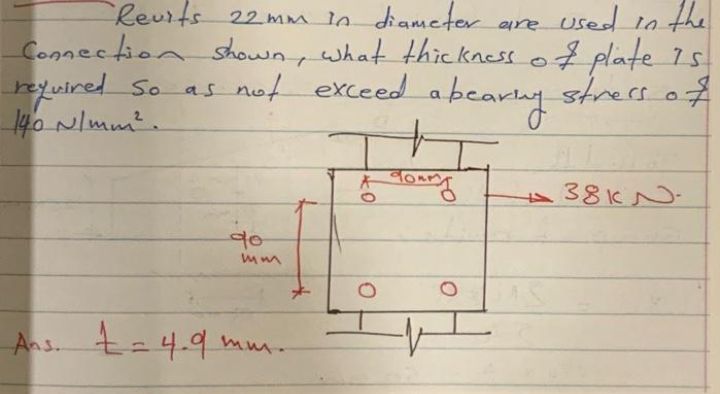 Reuits 22mm in diameter are used in the
Connection shown, what thickness of plate is
required so as not exceed a bearing stress of
140 N/mm².
90mm
38KN.
90
mm
Ans. t = 4.9 mm.